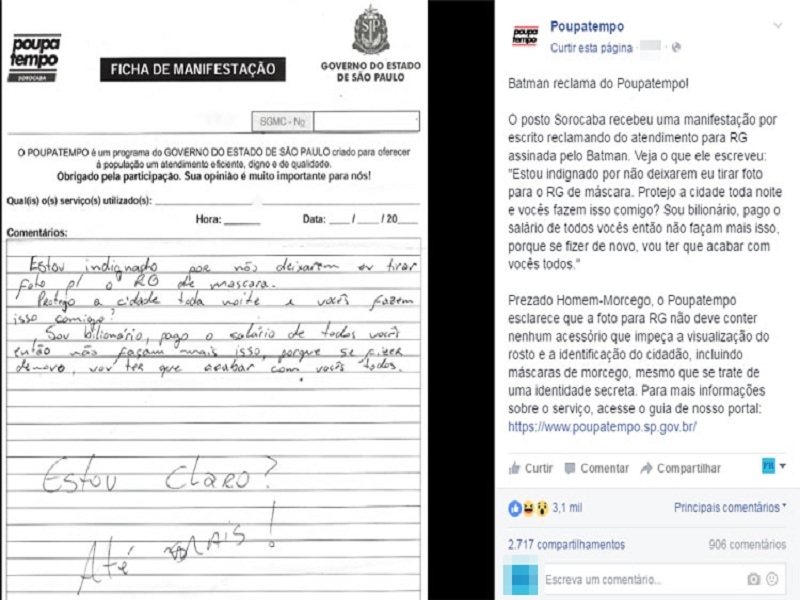 poupa
tempo
SOROCABA
FICHA DE MANIFESTAÇÃO
GOVERNO DO ESTADO
DE SÃO PAULO
SGMC - Nº
O POUPATEMPO é um programa do GOVERNO DO ESTADO DE SÃO PAULO criado para oferecer
à população um atendimento eficiente, digno e de qualidade.
Obrigado pela participação. Sua opinião é muito importante para nós!
Qual(is) o(s) serviço(s) utilizado(s):
Hora: ____ Data: ___/___/20___
Comentários:
Estou indignado por não deixarem eu tirar
foto p/ o RG de mascara.
Protego a cidade toda noite e vocês fazem
isso comigo?
Sou bilionário, pago o salário de todos vocês
então não façam mais isso, porque se fizer
denovo, vou ter que acabar com vocês todos.
Estou Claro?
Até mais!
poupa
tempo
Poupatempo
Curtir esta página ·
Batman reclama do Poupatempo!
O posto Sorocaba recebeu uma manifestação por
escrito reclamando do atendimento para RG
assinada pelo Batman. Veja o que ele escreveu:
"Estou indignado por não deixarem eu tirar foto
para o RG de máscara. Protejo a cidade toda noite
e vocês fazem isso comigo? Sou bilionário, pago o
salário de todos vocês então não façam mais isso,
porque se fizer de novo, vou ter que acabar com
vocês todos."
Prezado Homem-Morcego, o Poupatempo
esclarece que a foto para RG não deve conter
nenhum acessório que impeça a visualização do
rosto e a identificação do cidadão, incluindo
máscaras de morcego, mesmo que se trate de
uma identidade secreta. Para mais informações
sobre o serviço, acesse o guia de nosso portal:
https://www.poupatempo.sp.gov.br/
Curtir Comentar Compartilhar
3,1 mil Principais comentários
2.717 compartilhamentos 906 comentários
Escreva um comentário...